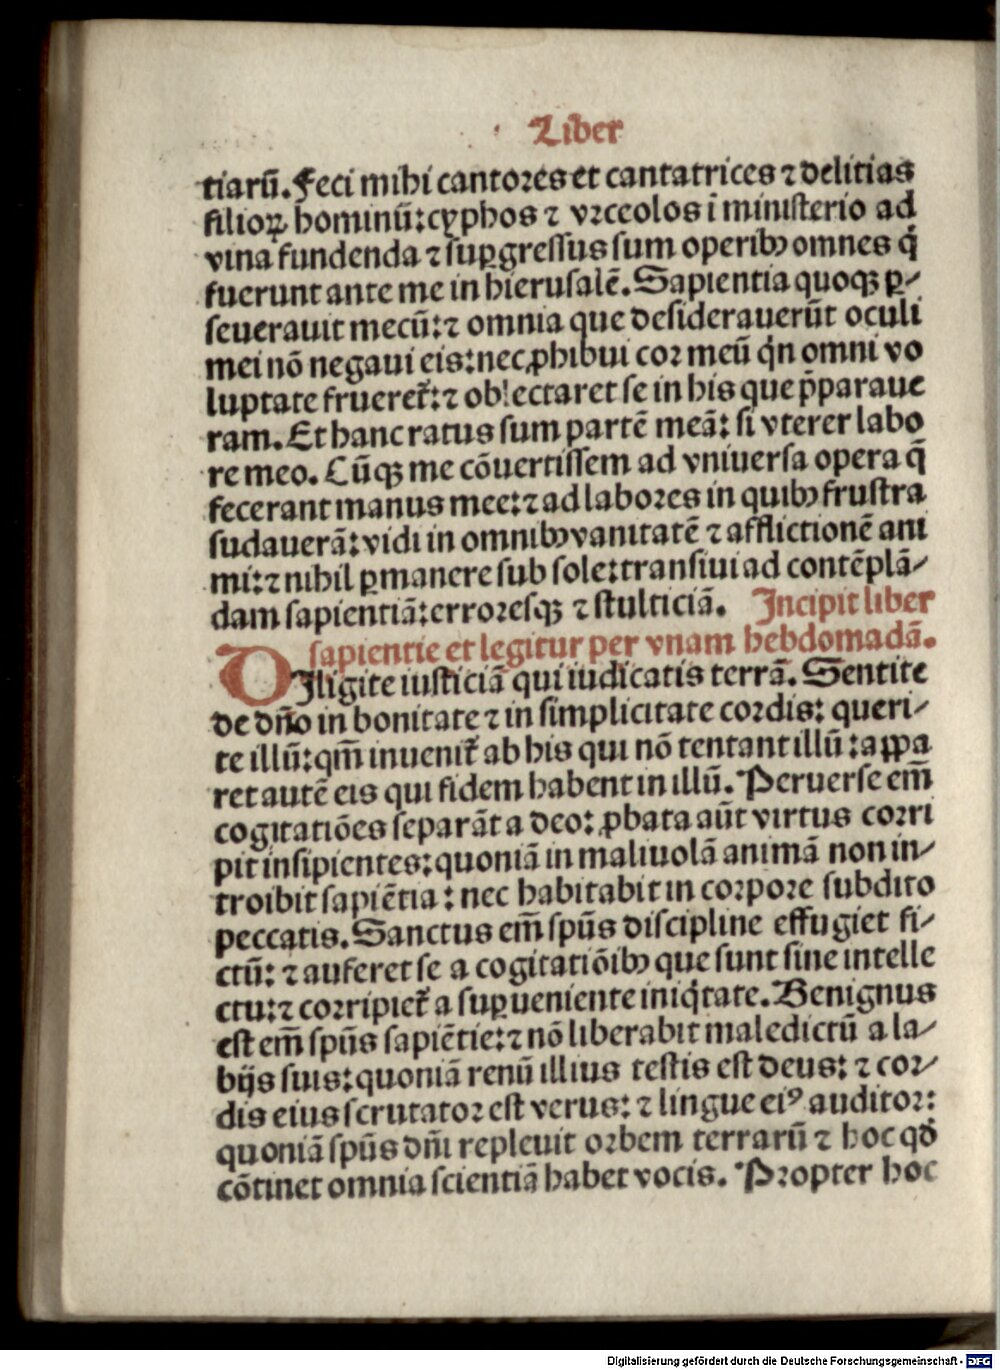 Liber
tiarū. Feci mihi cantores et cantatrices ⁊ delitias
filioꝝ hominū: cyphos ⁊ vrceolos ī ministerio ad
vina fundenda ⁊ suꝑgressus sum operibꝫ omnes q̄
fuerunt ante me in hierusalē. Sapientia quoqꝫ ꝑ-
seuerauit mecū: ⁊ omnia que desiderauerūt oculi
mei nō negaui eis: nec ꝓhibui cor meū qͥn omni vo
luptate frueret᷑: ⁊ oblectaret se in his que p̄paraue
ram. Et hanc ratus sum partē meā: si vterer labo
re meo. Cūqꝫ me cōuertissem ad vniuersa opera q̄
fecerant manus mee: ⁊ ad labores in quibꝫ frustra
sudauerā: vidi in omnibꝫ vanitatē ⁊ afflictionē ani
mi: ⁊ nihil ꝑmanere sub sole: transiui ad contēplā-
dam sapientiā: erroresqꝫ ⁊ stulticiā. Incipit liber
sapientie et legitur per vnam hebdomadā.
DIligite iusticiā qui iudicatis terrā. Sentite
de dn̄o in bonitate ⁊ in simplicitate cordis: queri-
te illū: qm̄ inuenit᷑ ab his qui nō tentant illū: apꝑa
ret autē eis qui fidem habent in illū. Peruerse em̄
cogitatiōes separāt a deo: ꝓbata aūt virtus corri
pit insipientes: quoniā in maliuolā animā non in-
troibit sapiētia: nec habitabit in corpore subdito
peccatis. Sanctus em̄ spūs discipline effugiet fi-
ctū: ⁊ auferet se a cogitatiōibꝫ que sunt sine intelle
ctu: ⁊ corripiet᷑ a suꝑueniente iniqͥtate. Benignus
est em̄ spūs sapiētie: ⁊ nō liberabit maledictū a la-
bijs suis: quoniā renū illius testis est deus: ⁊ cor-
dis eius scrutator est verus: ⁊ lingue eiꝰ auditor:
quoniā spūs dn̄i repleuit orbem terrarū ⁊ hoc qd̓
cōtinet omnia scientiā habet vocis. Propter hoc
Digitalisierung gefördert durch die Deutsche Forschungsgemeinschaft - DFG